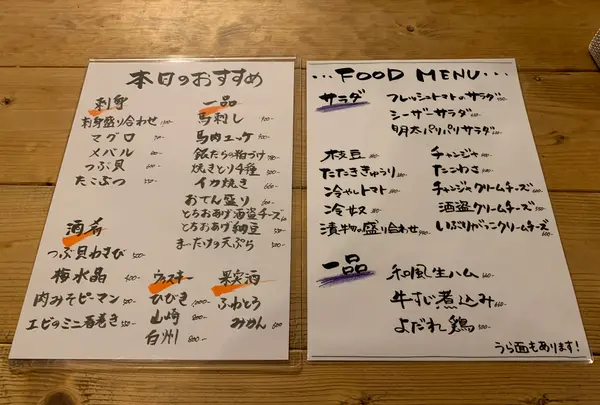 本日のおすすめ
刺身
刺身盛り合わせ
マグロ
メバル
つぶ貝
たこぶつ
酒肴
つぶ貝わさび
梅水晶
肉みそピーマン
エビのミニ春巻き
一品
馬刺し
馬肉ユッケ
銀だらの粕づけ
焼きとり4種
イカ焼き
おでん盛り
とちおあげ酒盗チーズ
とちおあげ納豆
まいたけの天ぷら
ウィスキー
ひびき
山崎 800-
白州 800-
果実酒
ふわとろ
みかん
・・・FOOD MENU・・・
サラダ
フレッシュトマトのサラダ
シーザーサラダ
明太パリパリサラダ
枝豆
たたききゅうり
冷やしトマト
冷奴
漬物の盛り合わせ
チャンジャ
たこわさ
チャンジャクリームチーズ
酒盗クリームチーズ
いぶりがっこクリームチーズ
一品
和風生ハム
牛すじ煮込み
よだれ鶏
うら面もあります!